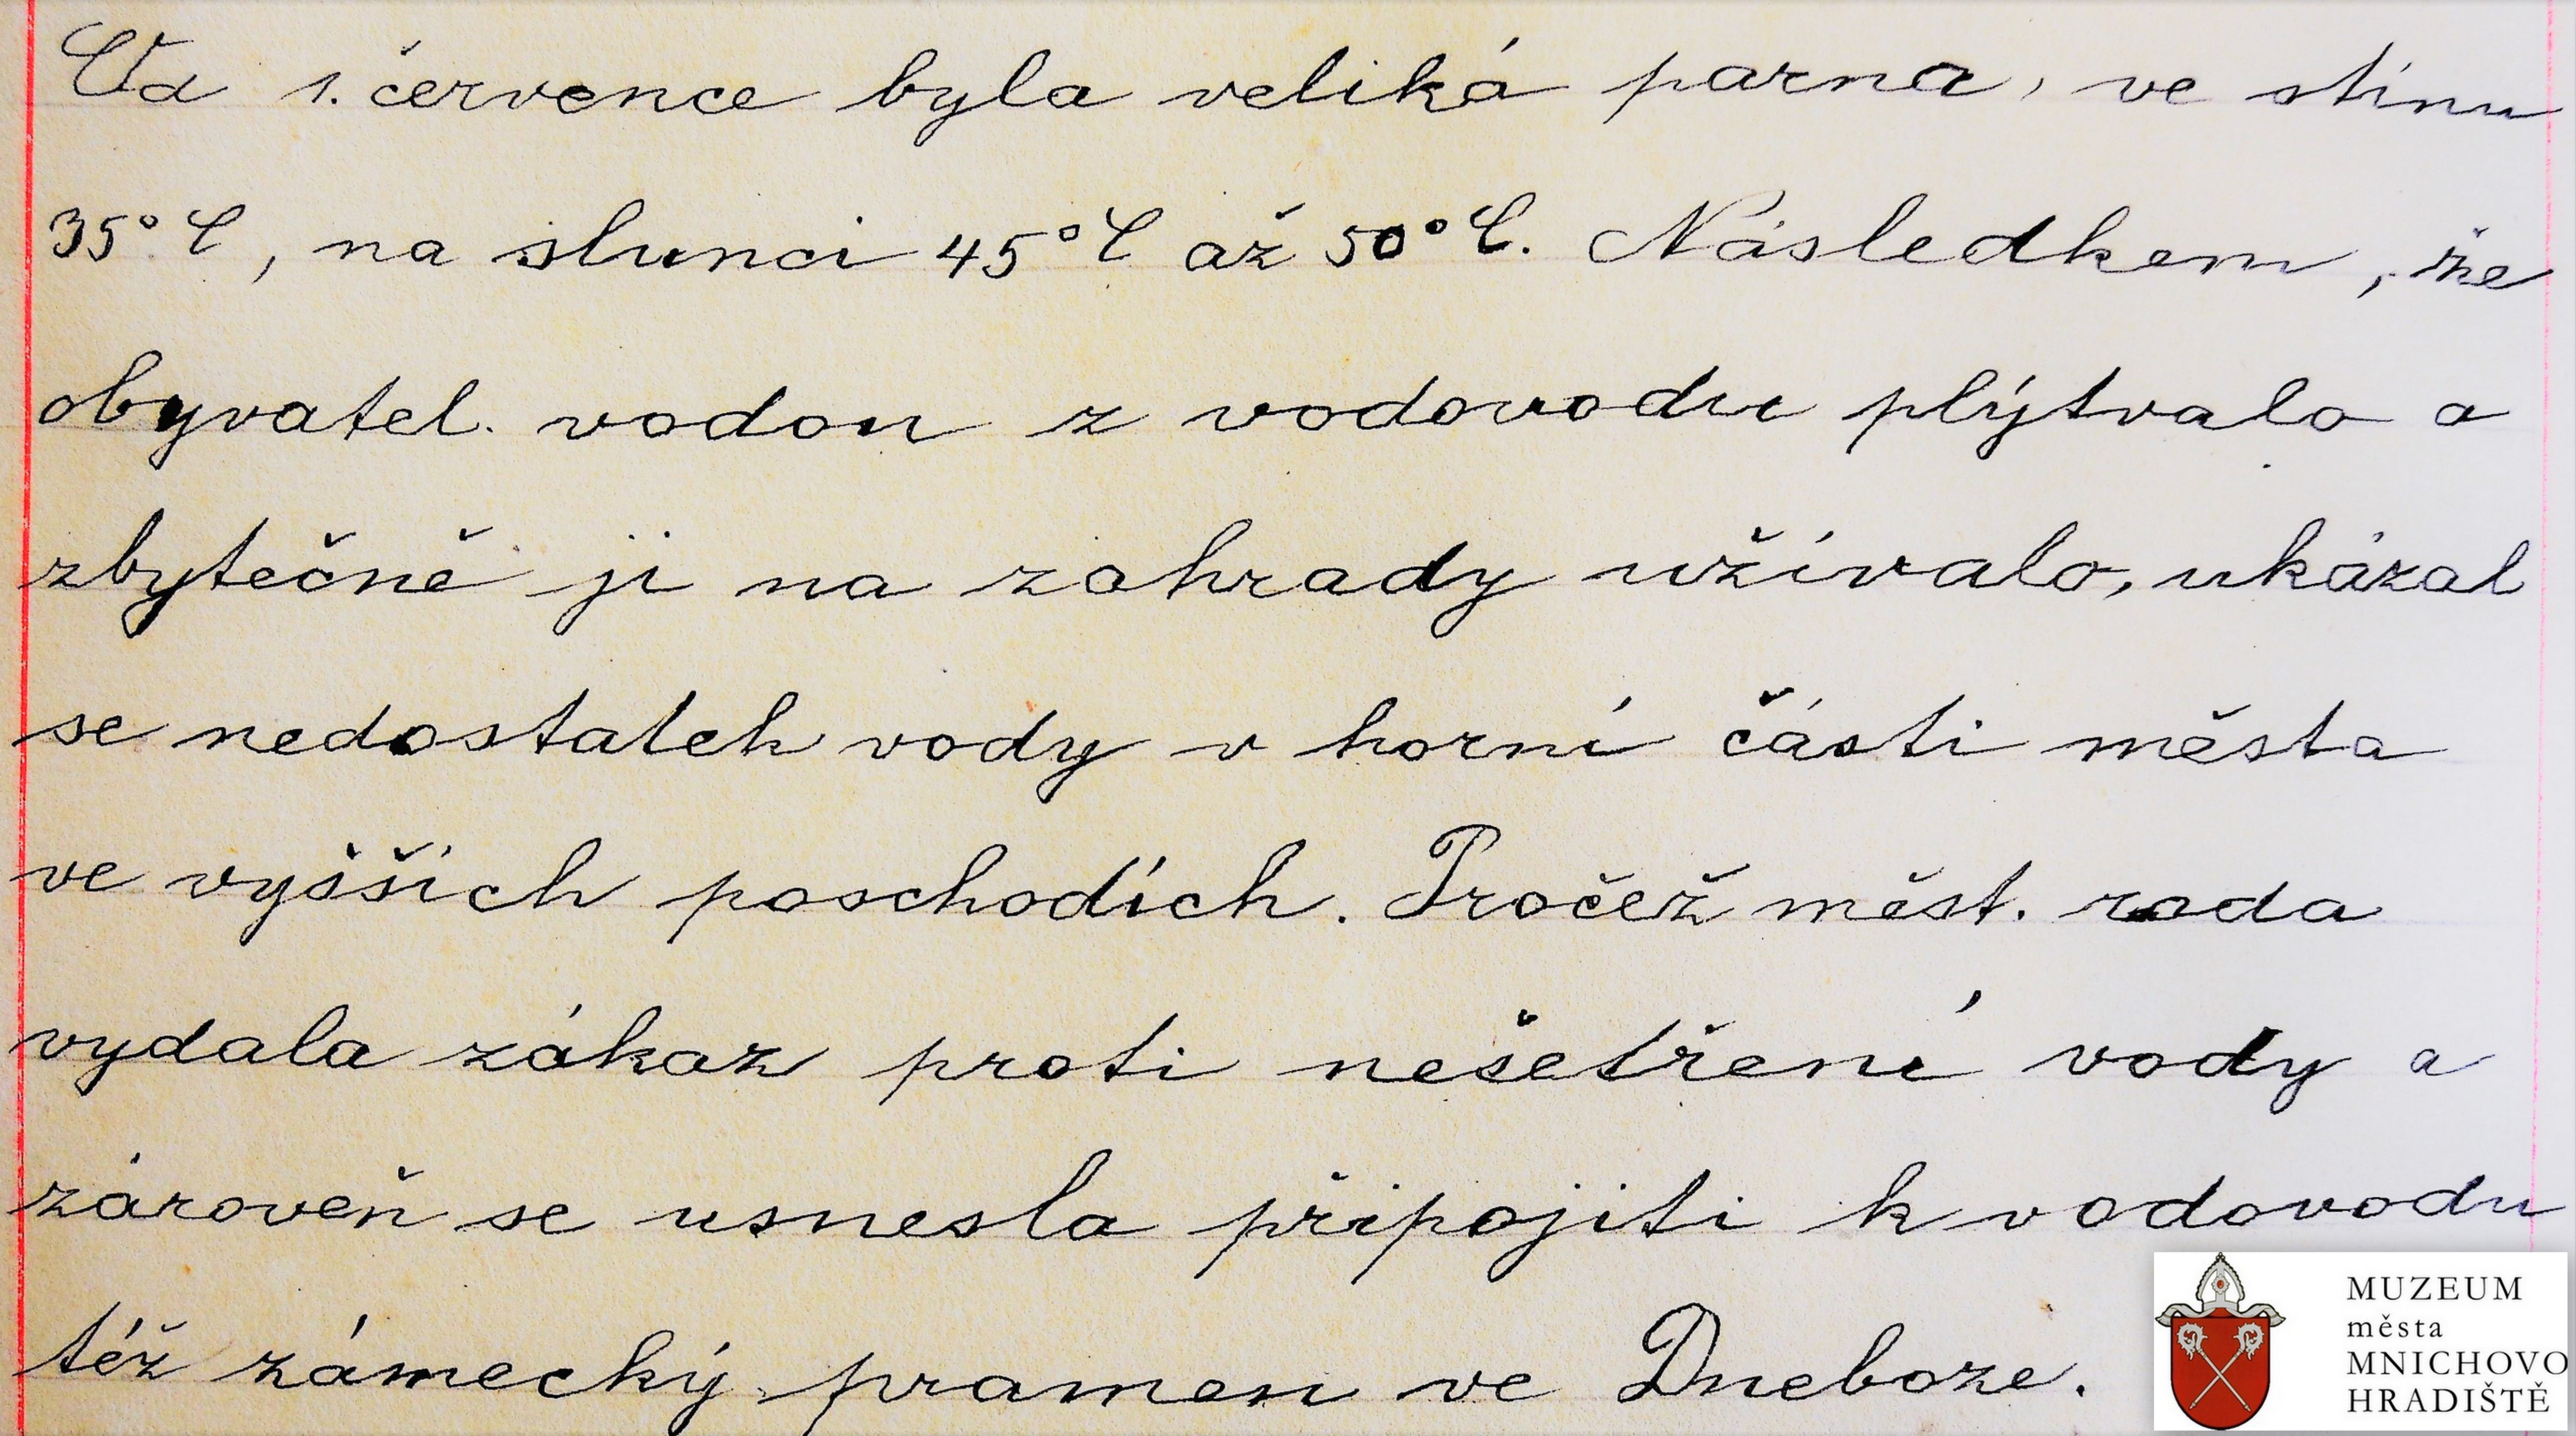 Od 1. července byla veliká parna, ve stínu
35° C, na slunci 45° C až 50° C. Následkem, že
obyvatel. vodou z vodovodu plýtvalo a
zbytečně ji na zahrady užívalo, ukázal
se nedostatek vody v horní části města
ve vyšších poschodích. Pročež měst. rada
vydala zákaz proti nešetření vody a
zároveň se usnesla připojiti k vodovodu
též zámecký pramen ve Dneboze.
MUZEUM
města
MNICHOVO
HRADIŠTĚ